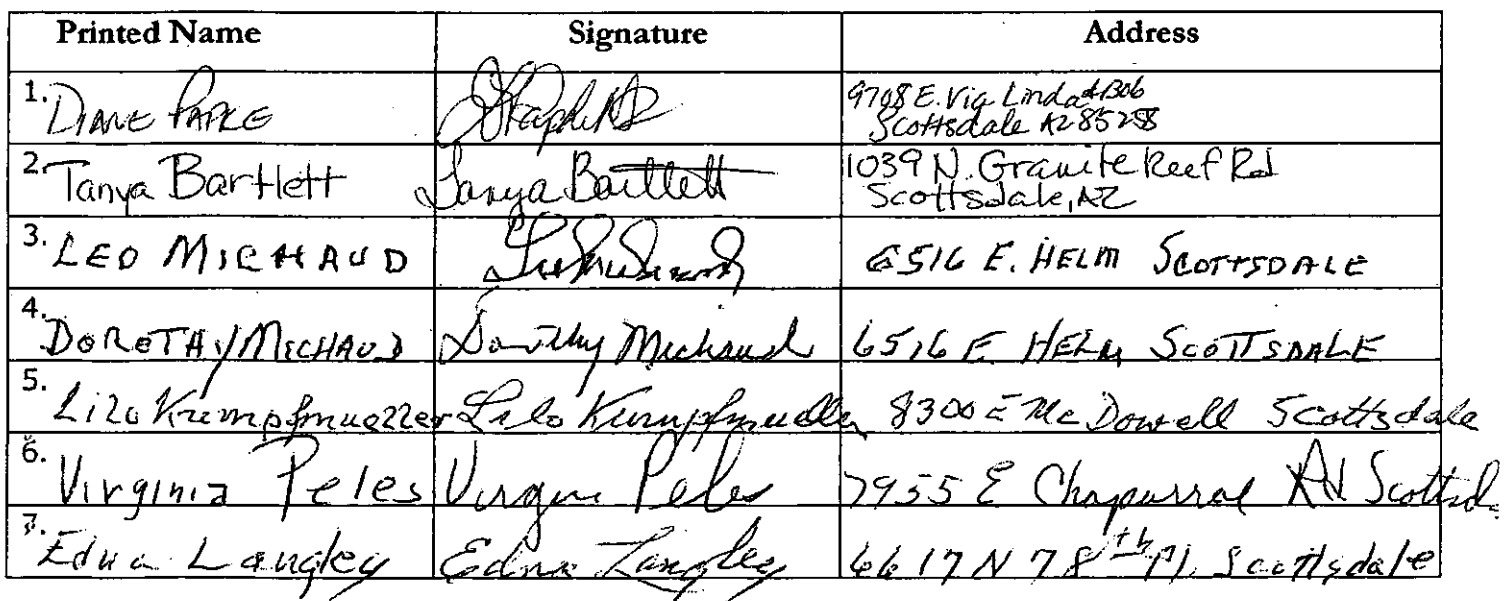 Printed Name Signature Address
1. DIANE PARKE
9708 E. Via Linda
Scottsdale AZ 85258
2. Tanya Bartlett Tanya Bartlett 1039 N. Granite Reef Rd
Scottsdale, AZ
3. LEO MICHAUD 6516 E. HELM SCOTTSDALE
4. DOROTHY MICHAUD Dorothy Michaud 6516 E. HELM SCOTTSDALE
5. Lilo Krempfmueller Lilo Kumpfmueller 8300 E McDowell Scottsdale
6. Virginia Peles Virginia Peles 7955 E Chaparral Rd Scottsd
7. Edna Langley Edna Langley 6617 N 78th Pl, Scottsdale